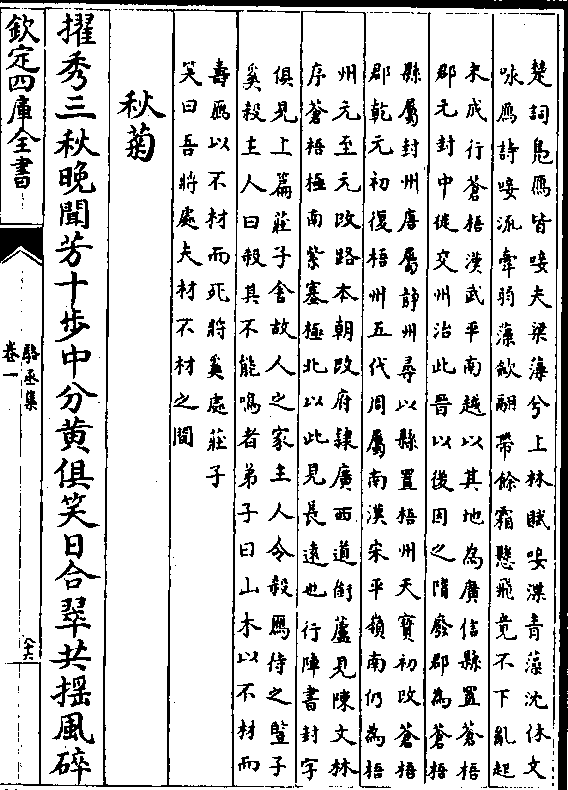 楚詞鳧鴈皆唼夫梁藻兮上林賦唼喋青藻沈休文
咏鴈詩唼流牽弱藻斂翮帶餘霜懸飛竟不下亂起
未成行蒼梧漢武平南越以其地為廣信縣置蒼梧
郡元封中徙交州治此晉以後因之隋廢郡為蒼梧
縣屬封州唐屬靜州尋以縣置梧州天寶初改蒼梧
郡乾元初復梧州五代周屬南漢宋平嶺南仍為梧
州元至元改路本朝改府隸廣西道銜蘆見陳文林
序蒼梧極南紫塞極北以此見長遠也行陣書封字
俱見上篇莊子舍故人之家主人令殺鴈侍之豎子
奚殺主人曰殺其不能鳴者弟子曰山木以不材而
壽鴈以不材而死將奚處莊子
笑曰吾將處夫材不材之間
秋菊
擢秀三秋晚聞芳十步中分黄俱笑日合翠共揺風碎
欽定四庫全書
駱丞集
卷一
六十